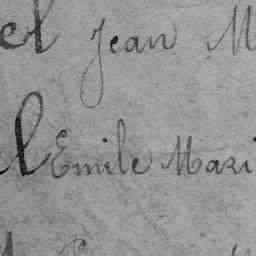 el Jean M
l Emile Mari